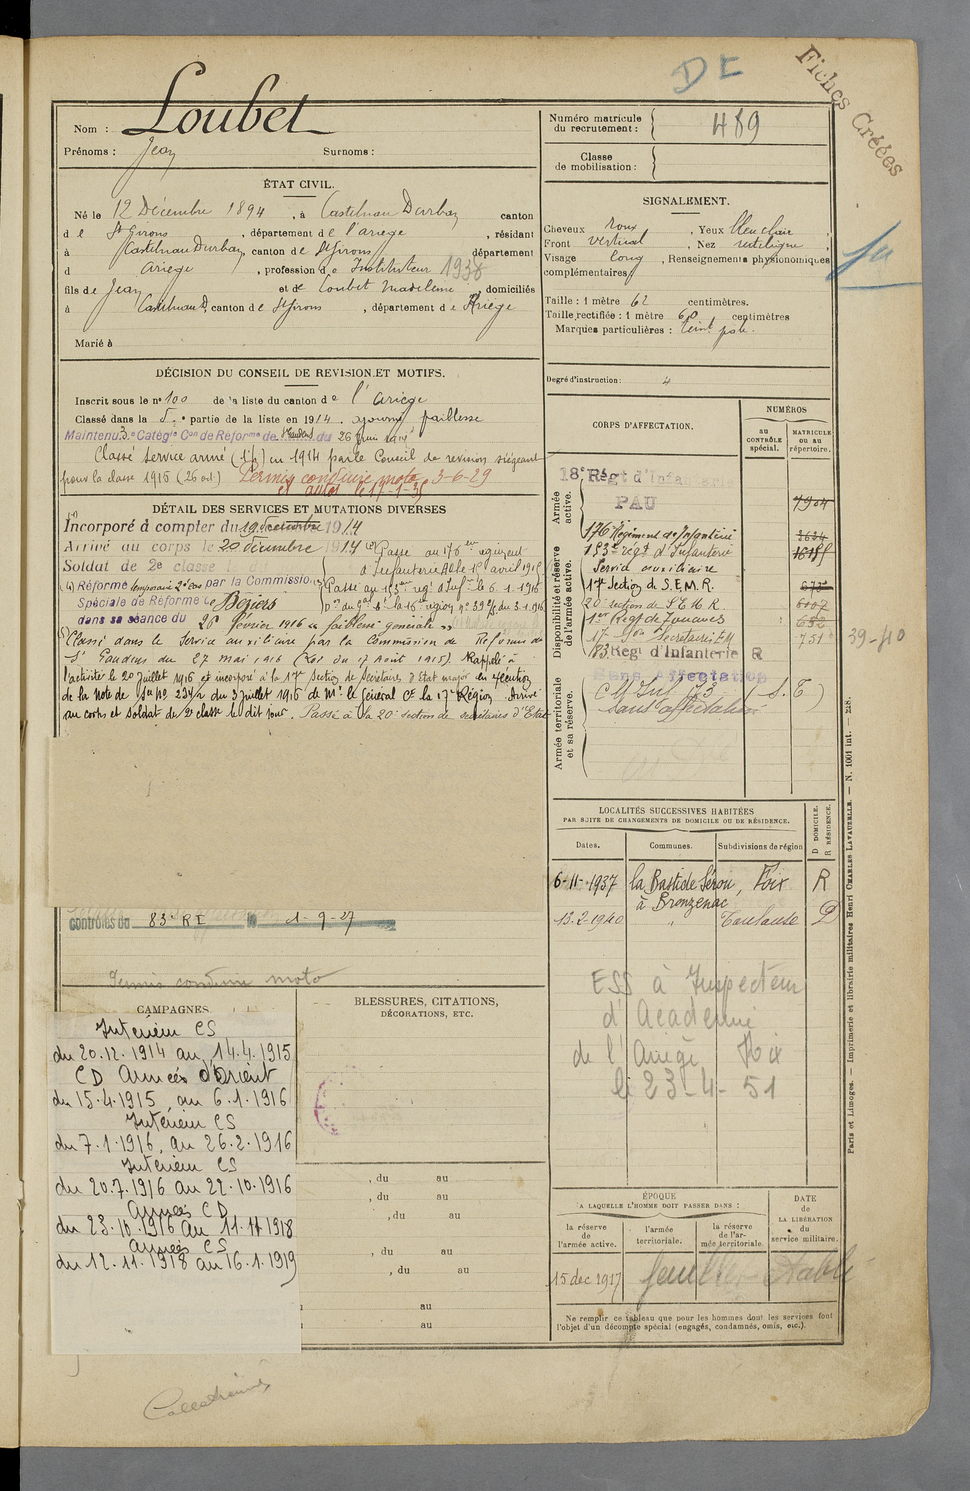 DE
Fiches Créées
Nom : Loubet
Prénoms : Jean Surnoms :
Numéro matricule du recrutement : 489
Classe de mobilisation :
ÉTAT CIVIL.
Né le 12 Décembre 1894, à Castelnau Durban canton
de St Girons, département de l'ariège, résidant
à Castelnau Durban, canton de St Girons département
d Ariège, profession de Instituteur 1938
fils de Jean et de Loubet Madeleine, domiciliés
à Castelnau D, canton de St Girons, département de Ariège
Marié à
SIGNALEMENT.
Cheveux roux, Yeux bleu clair,
Front vertical, Nez rectiligne,
Visage long, Renseignements physionomiques
complémentaires
Taille : 1 mètre 62 centimètres.
Taille rectifiée : 1 mètre 60 centimètres
Marques particulières : teint pale.
Degré d'instruction : 4
DÉCISION DU CONSEIL DE REVISION ET MOTIFS.
Inscrit sous le n° 100 de la liste du canton de l'Ariège
Classé dans la 5e partie de la liste en 1914. ajourné faiblesse
Maintenu 3e Catégie Con de Réforme de St Gaudens du 26 Juin
Classé service armé (1 p) en 1914 par le Conseil de revision siégeant
pour la classe 1915 (26 oct) Permis conduire moto 3-6-29
et auto le 17-1-35
DÉTAIL DES SERVICES ET MUTATIONS DIVERSES
Incorporé à compter du 19 décembre 1914
Arrivé au corps le 20 décembre 1914 Passé au 176eme régiment
Soldat de 2e classe le dit d'Infanterie le 15 avril 1915
Réforme temporaire 2e par la Commission Passé au 153eme reg. d'Inf le 6.1.1916
Spéciale de Réforme de Béziers
dans sa séance du 26 février 1916 « faiblesse générale »
Classé dans le Service auxiliaire par la Commission de Réforme de
St Gaudens du 27 mai 1916 (Loi du 17 Août 1915). Rappelé à
l'activité le 20 Juillet 1916 et incorporé à la 17e Section de Secrétaires d'Etat major en exécution
de la Note de Sce no 234/2 du 3 juillet 1916 de Mr le Général Ct la 17e Région. Arrivé
au corps et Soldat de 2e classe le dit jour. Passé à la 20e section de secrétaires d'Etat
contrôles du 83e RI le 1-9-27
Permis conduire moto
CORPS D'AFFECTATION.
NUMÉROS
au CONTRÔLE spécial.
MATRICULE ou au répertoire.
Armée active.
18e Régt d'Infanterie
PAU 7904
176e Régiment d'Infanterie 3634
153e régt d'Infanterie
Service auxiliaire
17e Section de S.E.M.R.
20e section de S E M R. 6007
1er Régt de Zouaves
17e Son Secrétaires EM 751 39-40
83 Régt d'Infanterie R
Sans affectation
Sans affectation
Disponibilité et réserve de l'armée active.
Armée territoriale et sa réserve.
LOCALITÉS SUCCESSIVES HABITÉES
PAR SUITE DE CHANGEMENTS DE DOMICILE OU DE RÉSIDENCE.
D DOMICILE. R RÉSIDENCE.
Dates. Communes. Subdivisions de région
6-11-1937 la Bastide Sérou, Foix R
à Bronzenac
13.2.1940 " Toulouse D
ESS à Inspecteur
d'Académie
de l'Ariège Foix
le 23-4-51
CAMPAGNES
Intérieur CS
du 20.12.1914 au 14.4.1915
CD Armées d'Orient
du 15.4.1915 au 6.1.1916
Intérieur CS
du 7.1.1916, au 26.2.1916
Intérieur CS
du 20.7.1916 au 22.10.1916
Armées CD
du 23.10.1916 au 11.11.1918
Armées CS
du 12.11.1918 au 16.1.1919
BLESSURES, CITATIONS,
DÉCORATIONS, ETC.
, du au
, du au
, du au
, du au
, du au
au
au
ÉPOQUE
A LAQUELLE L'HOMME DOIT PASSER DANS :
la réserve de l'armée active.
l'armée territoriale.
la réserve de l'armée territoriale.
DATE de LA LIBÉRATION du service militaire.
15 dec 1917
Ne remplir ce tableau que pour les hommes dont les services font
l'objet d'un décompte spécial (engagés, condamnés, omis, etc.).
Paris et Limoges. — Imprimerie et librairie militaires Henri CHARLES-LAVAUZELLE. — N. 1001 int. — 248.